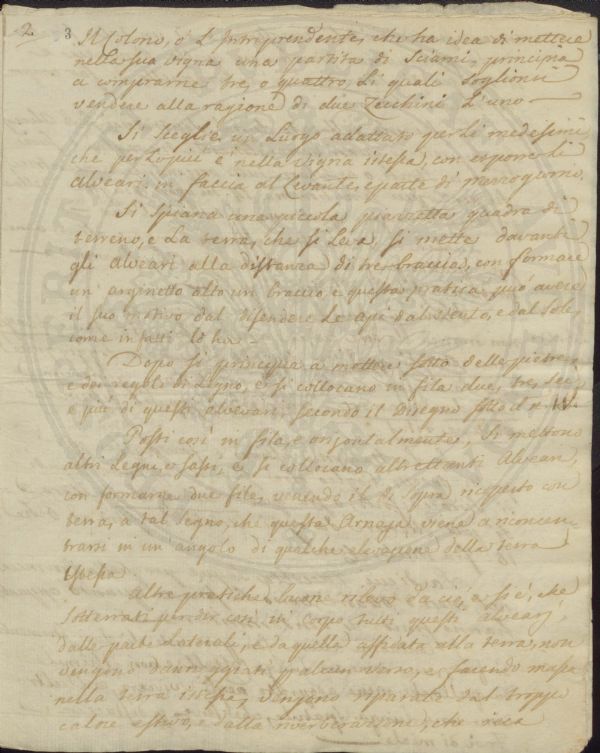 2 3
Il Colono, o' L'Intraprendente, che ha idea di mettere
nella sua vigna una partita di Sciami, principia
a comprarne tre, o quattro, Li quali Sogliono
vendere alla ragione di due Zecchini L'uno —
Si Sceglie un Luogo adattato per Li medesimi
che per Lo più é nella vigna istessa, con esporre Li
Alveari in faccia al Levante, e parte di mezzogiorno.
Si Spiana una piccola piazzetta quadra di
terreno, e La terra, che si Leva si mette davanti
gli Alveari alla distanza di tre braccia, con formare
un arginetto alto un braccio, e questa pratica può avere
il suo motivo dal difendere Le Api dal vento, e dal Sole,
come in fatti Lo ha —
Dopo si principia a mettere Sotto delle pietre,
e dei regoli di Legno, e si collocano in fila due, tre, Sei
o più di questi alveari Secondo il Disegno Sotto il n. IV.
Posti così in fila, e orizontalmente, Si mettono
altri Legni, o Sassi, e Si collocano altrettanti Alveari,
con formarne due file, venendo il di Sopra ricoperto con
terra, a tal Segno, che questa Arnaja viene a
in un angolo di qualche elevazione della terra
istessa
Altre pratiche buone rilevo da ciò, e si è, che
Sotterrati per dir così in corpo tutti questi alveari,
dalle parti Laterali, e da quella affidata alla terra, non
vengono danneggiati per alcun verso, e facendo massa
nella terra istessa, vengono riparate dal troppo
calore estivo, e dalla riverberazione, che reca